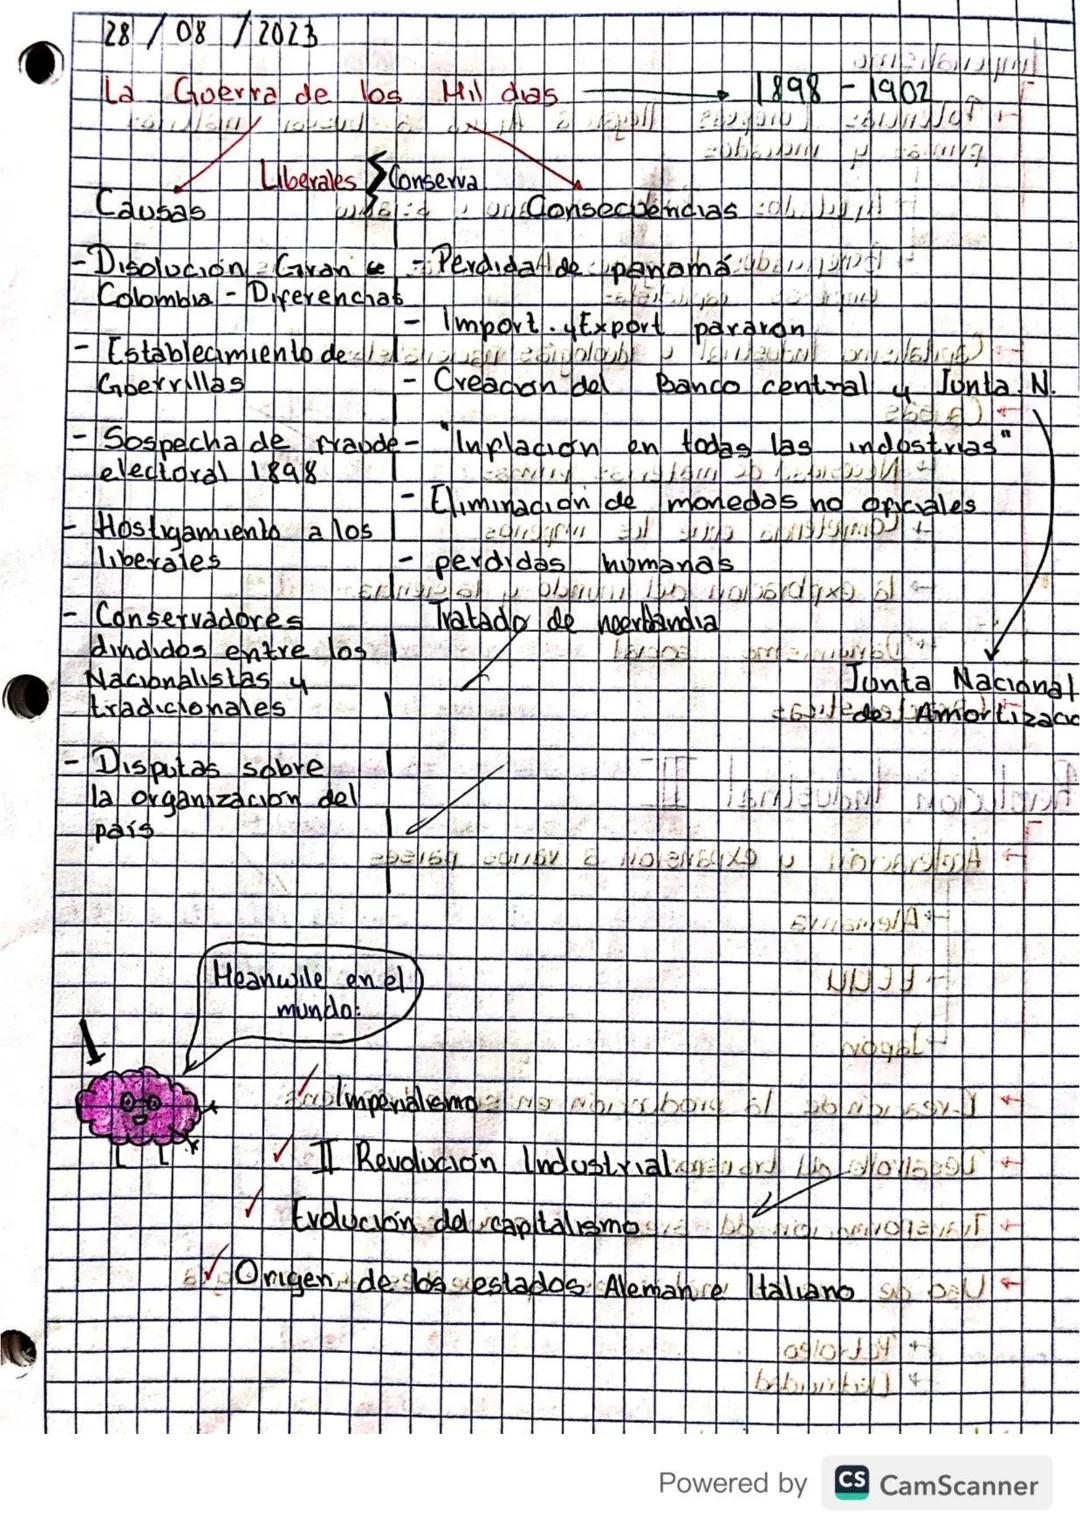 28 / 08 / 2023
La Guerra de los Mil dias → 1898 - 1902
Liberales Conserva
Causas
- Disolución Gran
Colombia - Diferencias
- Establecimiento de
Guerrillas
- Sospecha de fraude
electoral 1898
- Hostigamiento a los
liberales
- Conservadores
dividídos entre los
Nacionalistas y
tradicionales
- Disputas sobre
la organización del
país
Consecuencias
- Perdida de panamá
- Import. y Export pararon
- Creacion del Banco central y Junta N.
- "Inflación en todas las industrias"
- Eliminación de monedas no oficiales
- perdidas humanas
Tratado de neerlandia
Junta Nacional
de Amortizacio
Meanwile en el
mundo:
✓ Imperialismo
✓ II Revolución Industrial
✓ Evolución del capitalismo
✓ Origen de los estados Aleman e Italiano
Powered by CS CamScanner